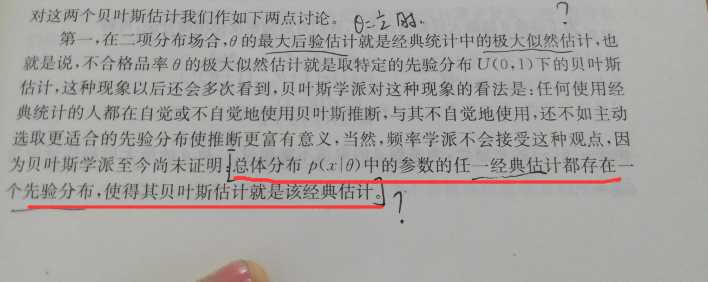 对这两个贝叶斯估计我们作如下两点讨论。 θ=½时. ?
第一,在二项分布场合,θ的最大后验估计就是经典统计中的极大似然估计,也
就是说,不合格品率θ的极大似然估计就是取特定的先验分布U(0,1)下的贝叶斯
估计,这种现象以后还会多次看到,贝叶斯学派对这种现象的看法是:任何使用经
典统计的人都在自觉或不自觉地使用贝叶斯推断,与其不自觉地使用,还不如主动
选取更适合的先验分布使推断更富有意义,当然,频率学派不会接受这种观点,因
为贝叶斯学派至今尚未证明:[总体分布 p(x|θ)中的参数的任一经典估计都存在一
个先验分布,使得其贝叶斯估计就是该经典估计。] ?